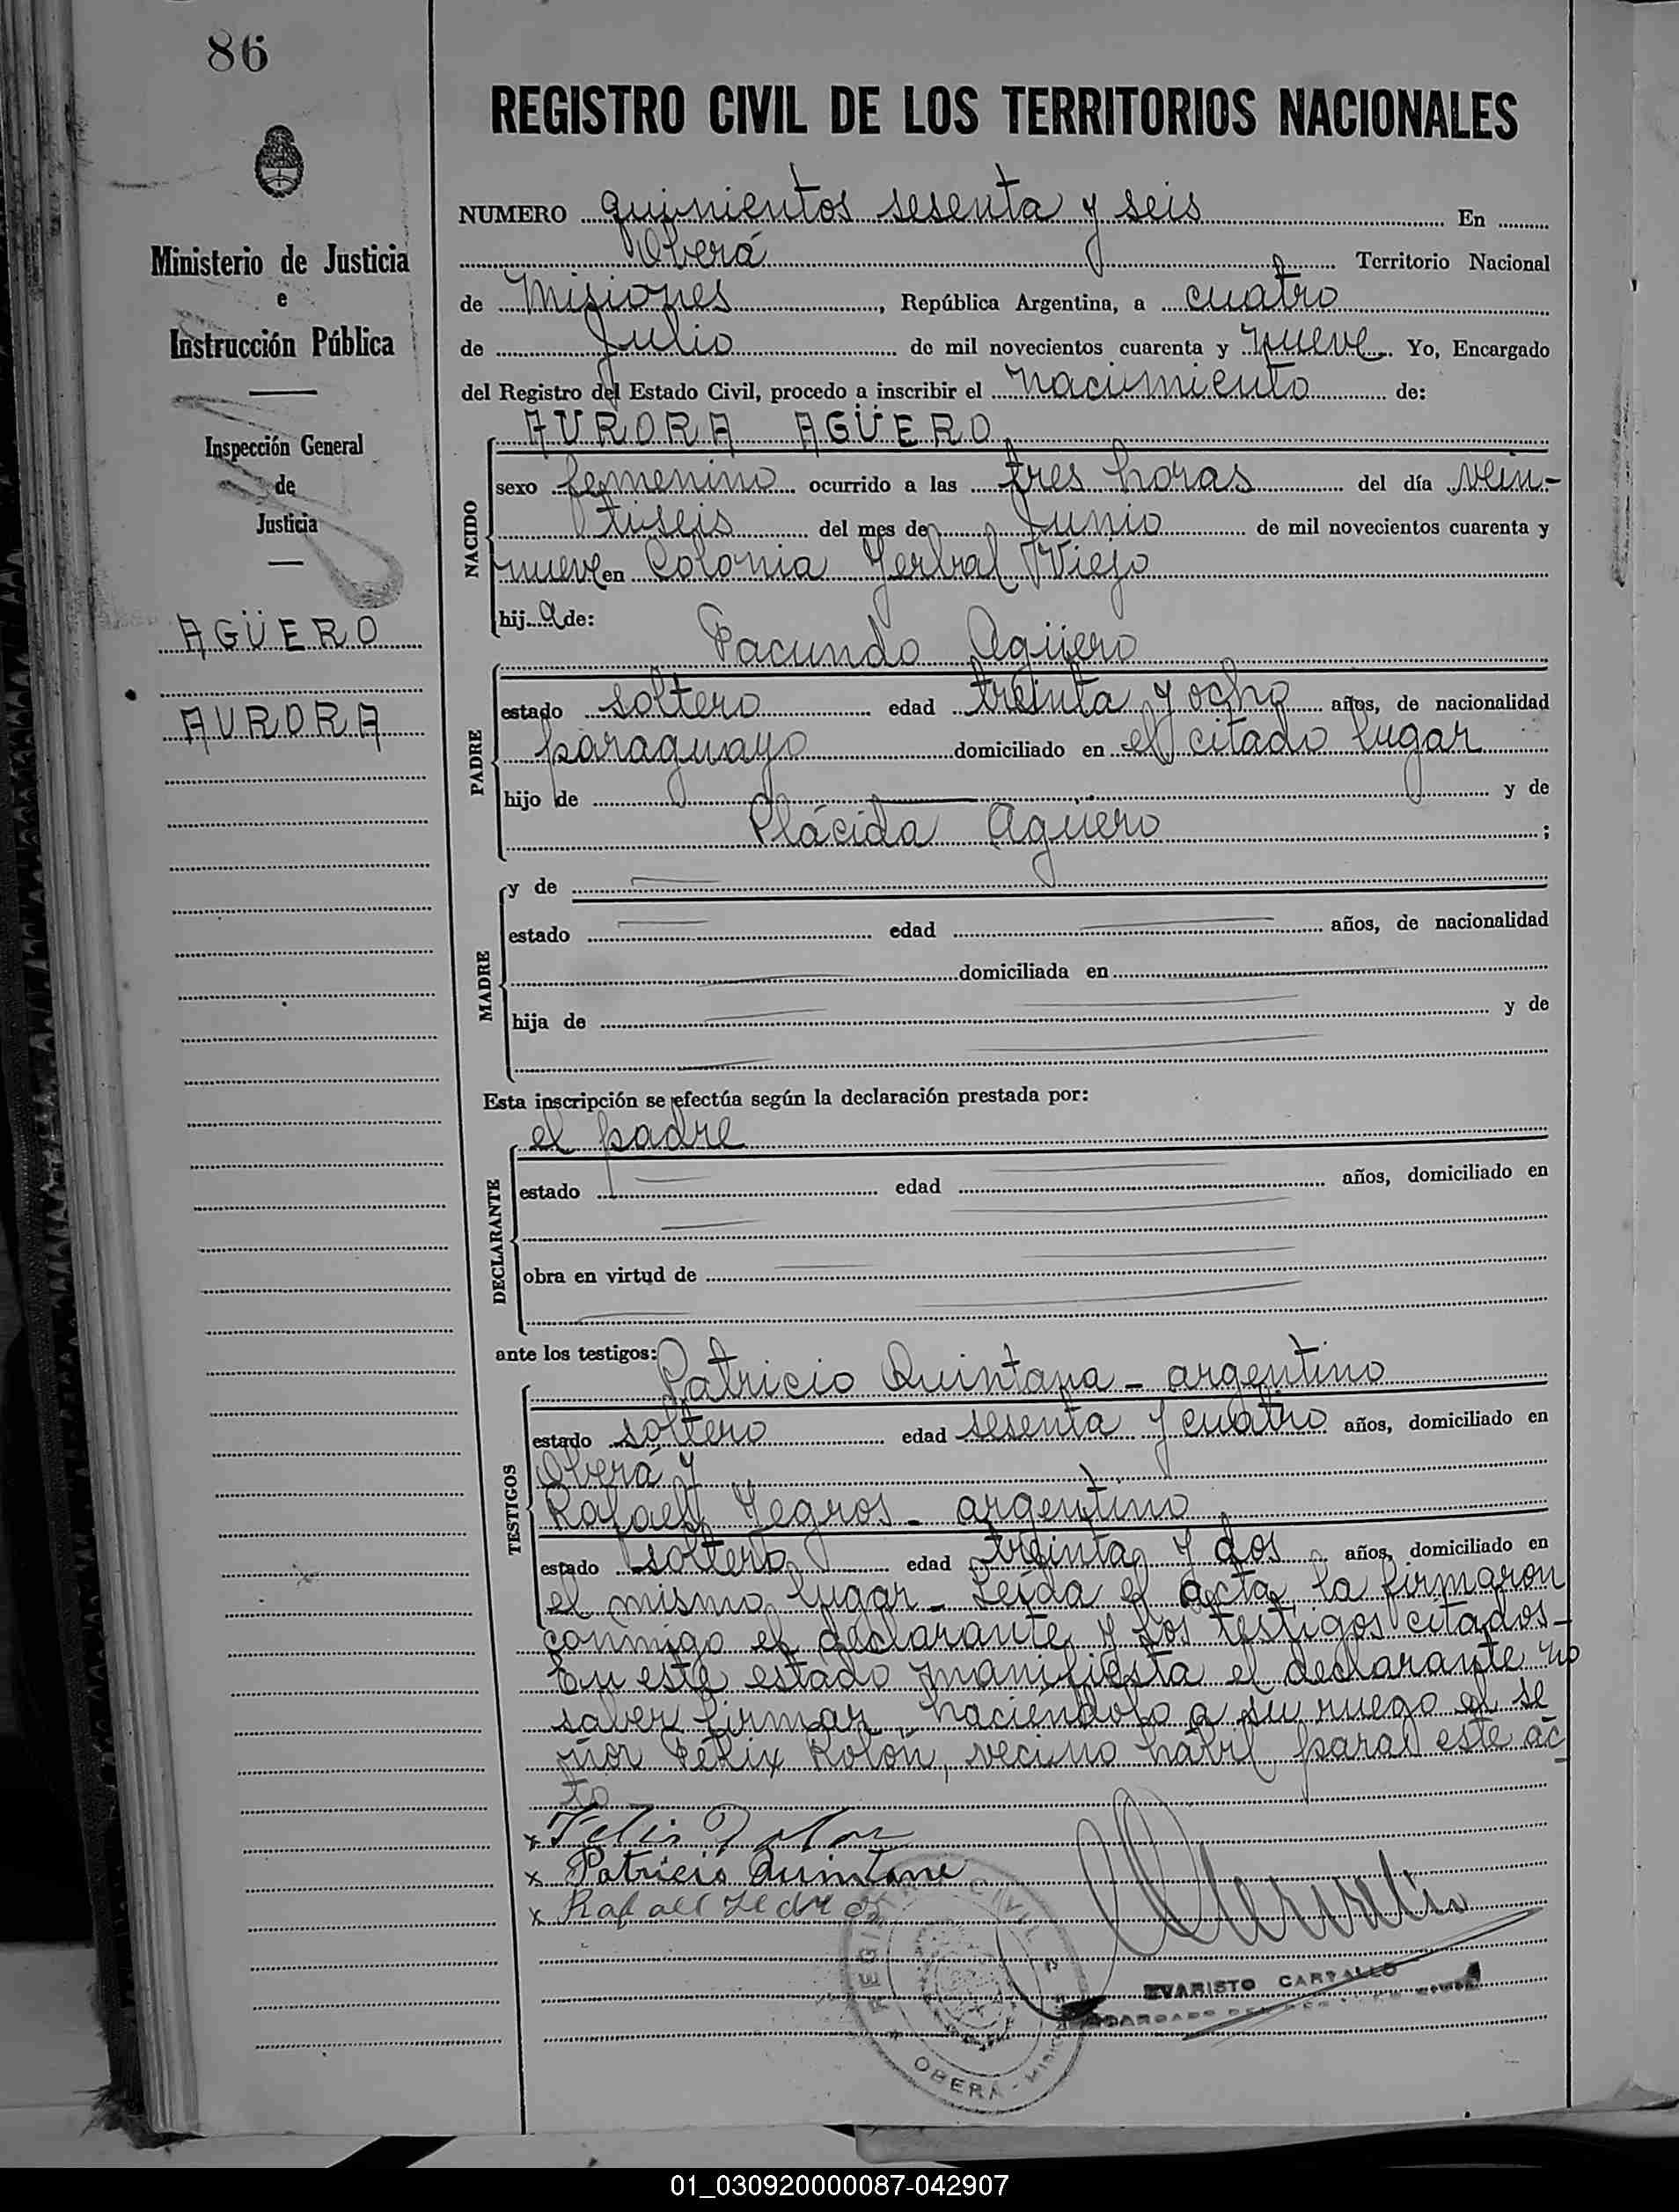 86
REGISTRO CIVIL DE LOS TERRITORIOS NACIONALES
Ministerio de Justicia
e
Instrucción Pública
Inspección General
de
Justicia
AGÜERO
AURORA
NUMERO quinientos sesenta y seis En
Oberá Territorio Nacional
de Misiones, República Argentina, a cuatro
de Julio de mil novecientos cuarenta y nueve. Yo, Encargado
del Registro del Estado Civil, procedo a inscribir el nacimiento de:
NACIDO
AURORA AGÜERO
sexo femenino ocurrido a las tres horas del día vein-
tiseis del mes de Junio de mil novecientos cuarenta y
nueve en Colonia Yerbal Viejo
hija de:
PADRE
Facundo Agüero
estado soltero edad treinta y ocho años, de nacionalidad
paraguayo domiciliado en el citado lugar
hijo de y de
Plácida Agüero;
MADRE
y de
estado edad años, de nacionalidad
domiciliada en
hija de y de
Esta inscripción se efectúa según la declaración prestada por:
DECLARANTE
el padre
estado edad años, domiciliado en
obra en virtud de
ante los testigos:
TESTIGOS
Patricio Quintana - argentino
estado soltero edad sesenta y cuatro años, domiciliado en
Oberá y
Rafael Yegros - argentino
estado soltero edad treinta y dos años, domiciliado en
el mismo lugar - Leída el acta la firmaron
conmigo el declarante y los testigos citados -
En este estado manifiesta el declarante no
saber firmar, haciéndolo a su ruego el se
ñor Félix Rolón, vecino hábil para este ac
to
x Felix Rolon
x Patricio Quintana
x Rafael
REGISTRO CIVIL
OBERÁ - MISIONES
EVARISTO CARVALLO